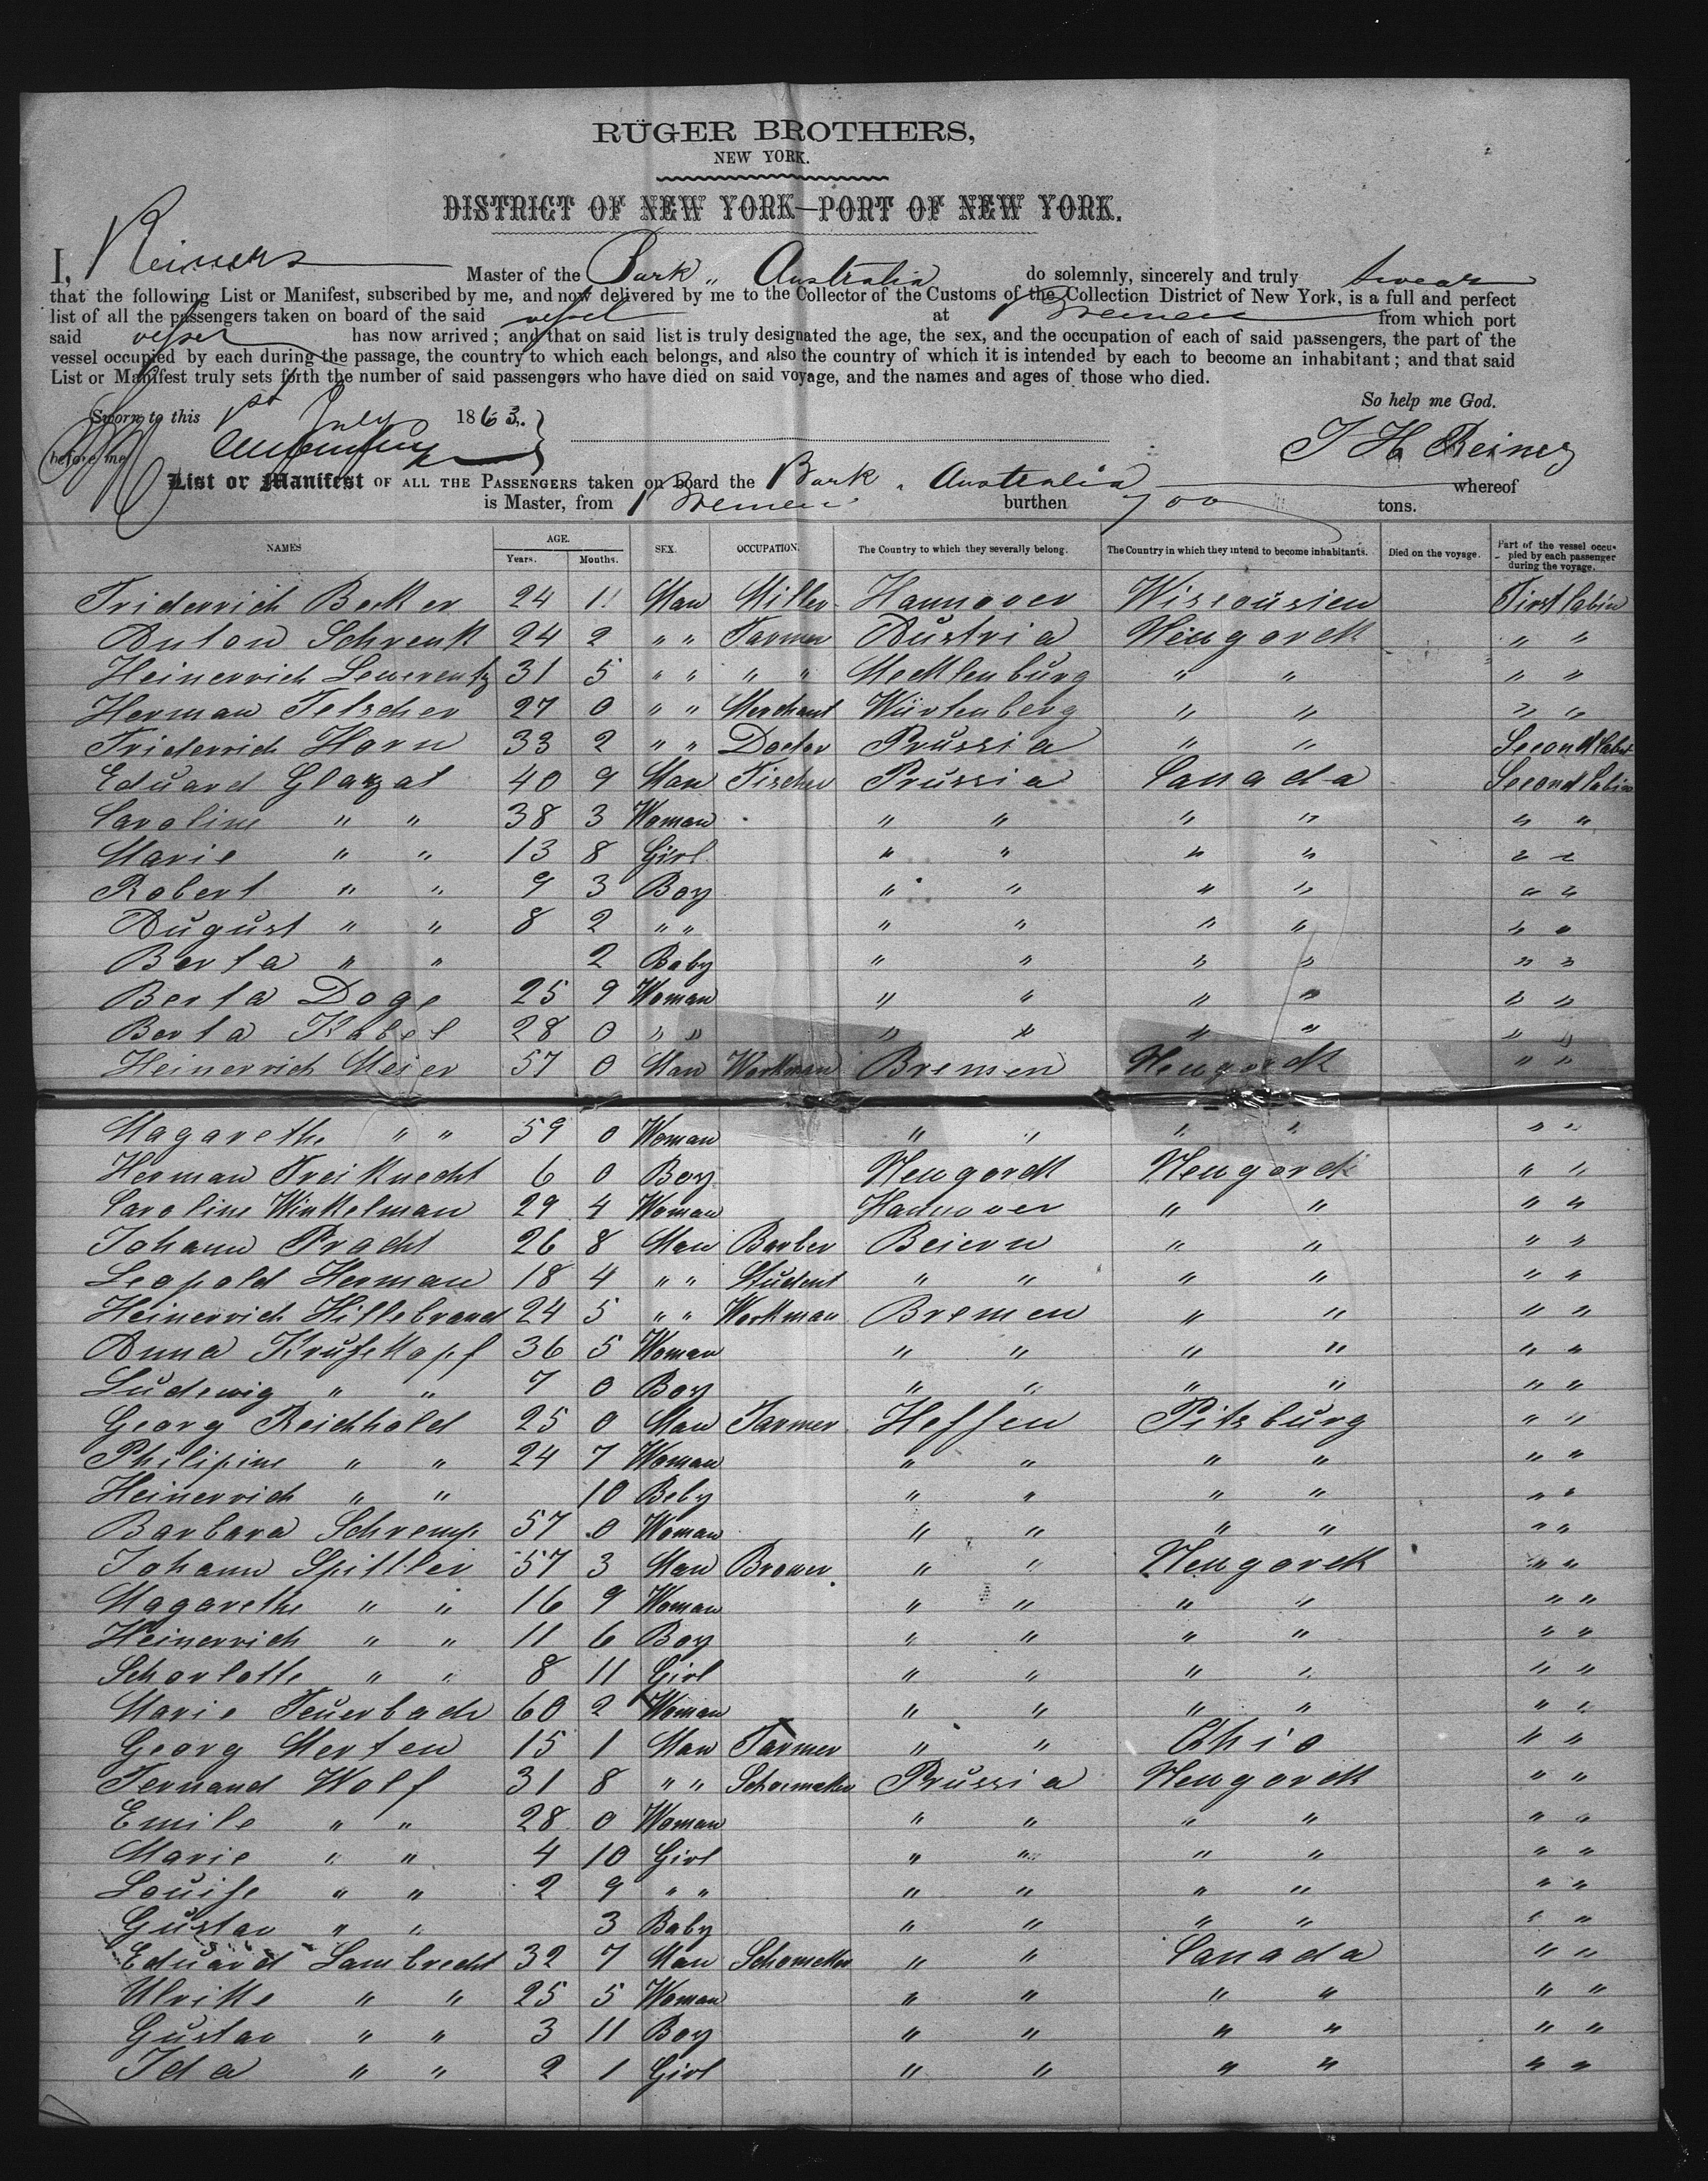 RÜGER BROTHERS,
NEW YORK.
DISTRICT OF NEW YORK—PORT OF NEW YORK.
I, Reiners Master of the Bark „ Australia do solemnly, sincerely and truly swear
that the following List or Manifest, subscribed by me, and now delivered by me to the Collector of the Customs of the Collection District of New York, is a full and perfect
list of all the passengers taken on board of the said vessel at Bremen from which port
said vessel has now arrived; and that on said list is truly designated the age, the sex, and the occupation of each of said passengers, the part of the
vessel occupied by each during the passage, the country to which each belongs, and also the country of which it is intended by each to become an inhabitant; and that said
List or Manifest truly sets forth the number of said passengers who have died on said voyage, and the names and ages of those who died.
So help me God.
Sworn to this 1st July 1863.
before me
List or Manifest OF ALL THE PASSENGERS taken on board the Bark „ Australia whereof
is Master, from Bremen burthen 700 tons.
NAMES AGE. Years. Months. SEX. OCCUPATION. The Country to which they severally belong. The Country in which they intend to become inhabitants. Died on the voyage. Part of the vessel occupied by each passenger during the voyage.
Friderrich Becker 24 11 Man Miller Hannover Wisconsien First Cabin
Anton Schrenk 24 2 " " Farmer Austria Neuyorck " "
Heinerrich Lewerentz 31 5 " " " " Mecklenburg " " " "
Herman Telscher 27 0 " " Merchant Würtenberg " " " "
Friderrich Horn 33 2 " " Doctor Prussia " " Second Cabin
Eduard Glakzat 40 9 Man Fischer Prussia Canada Second Cabin
Caroline " " 38 3 Woman " " " " " "
Marie " " 13 8 Girl " " " " " "
Robert " " 9 3 Boy " " " " " "
August " " 8 2 " " " " " " " "
Berta " " 2 Baby " " " " " "
Berta Doge 25 9 Woman " " " " " "
Berta Kabel 28 0 " " " " " " " "
Heinerrich Meier 57 0 Man Workman Bremen Neuyorck " "
Magarethe " " 59 0 Woman " " " " " "
Herman Freiknecht 6 0 Boy Neuyorck Neuyorck " "
Caroline Winkelman 29 4 Woman Hannover " " " "
Johann Pracht 26 8 Man Barber Beiern " " " "
Leopold Herman 18 4 " " Student " " " " " "
Heinerrich Hillebrand 24 5 " " Workman Bremen " " " "
Anna Krusekopf 36 5 Woman " " " " " "
Ludewig " " 7 0 Boy " " " " " "
Georg Reichhold 25 0 Man Farmer Hessen Pitsburg " "
Philipine " " 24 7 Woman " " " " " "
Heinerrich " " 10 Beby " " " " " "
Barbara Schremp 57 0 Woman " " " " " "
Johann Spittler 57 3 Man Brower " " Neuyorck " "
Magarethe " " 16 9 Woman " " " " " "
Heinerrich " " 11 6 Boy " " " " " "
Scharlotte " " 8 11 Girl " " " " " "
Marie Feuerbach 60 2 Woman " " " " " "
Georg Merten 15 1 Man Farmer " " Ohio " "
Fernand Wolf 31 8 " " Schoemaker Prussia Neuyorck " "
Emile " " 28 0 Woman " " " " " "
Marie " " 4 10 Girl " " " " " "
Louise " " 2 9 " " " " " " " "
Gustav " " 3 Baby " " " " " "
Eduard Lambrecht 32 7 Man Schomeker " " Canada " "
Ulrikke " " 25 5 Woman " " " " " "
Gustav " " 3 11 Boy " " " " " "
Ida " " 2 1 Girl " " " " " "